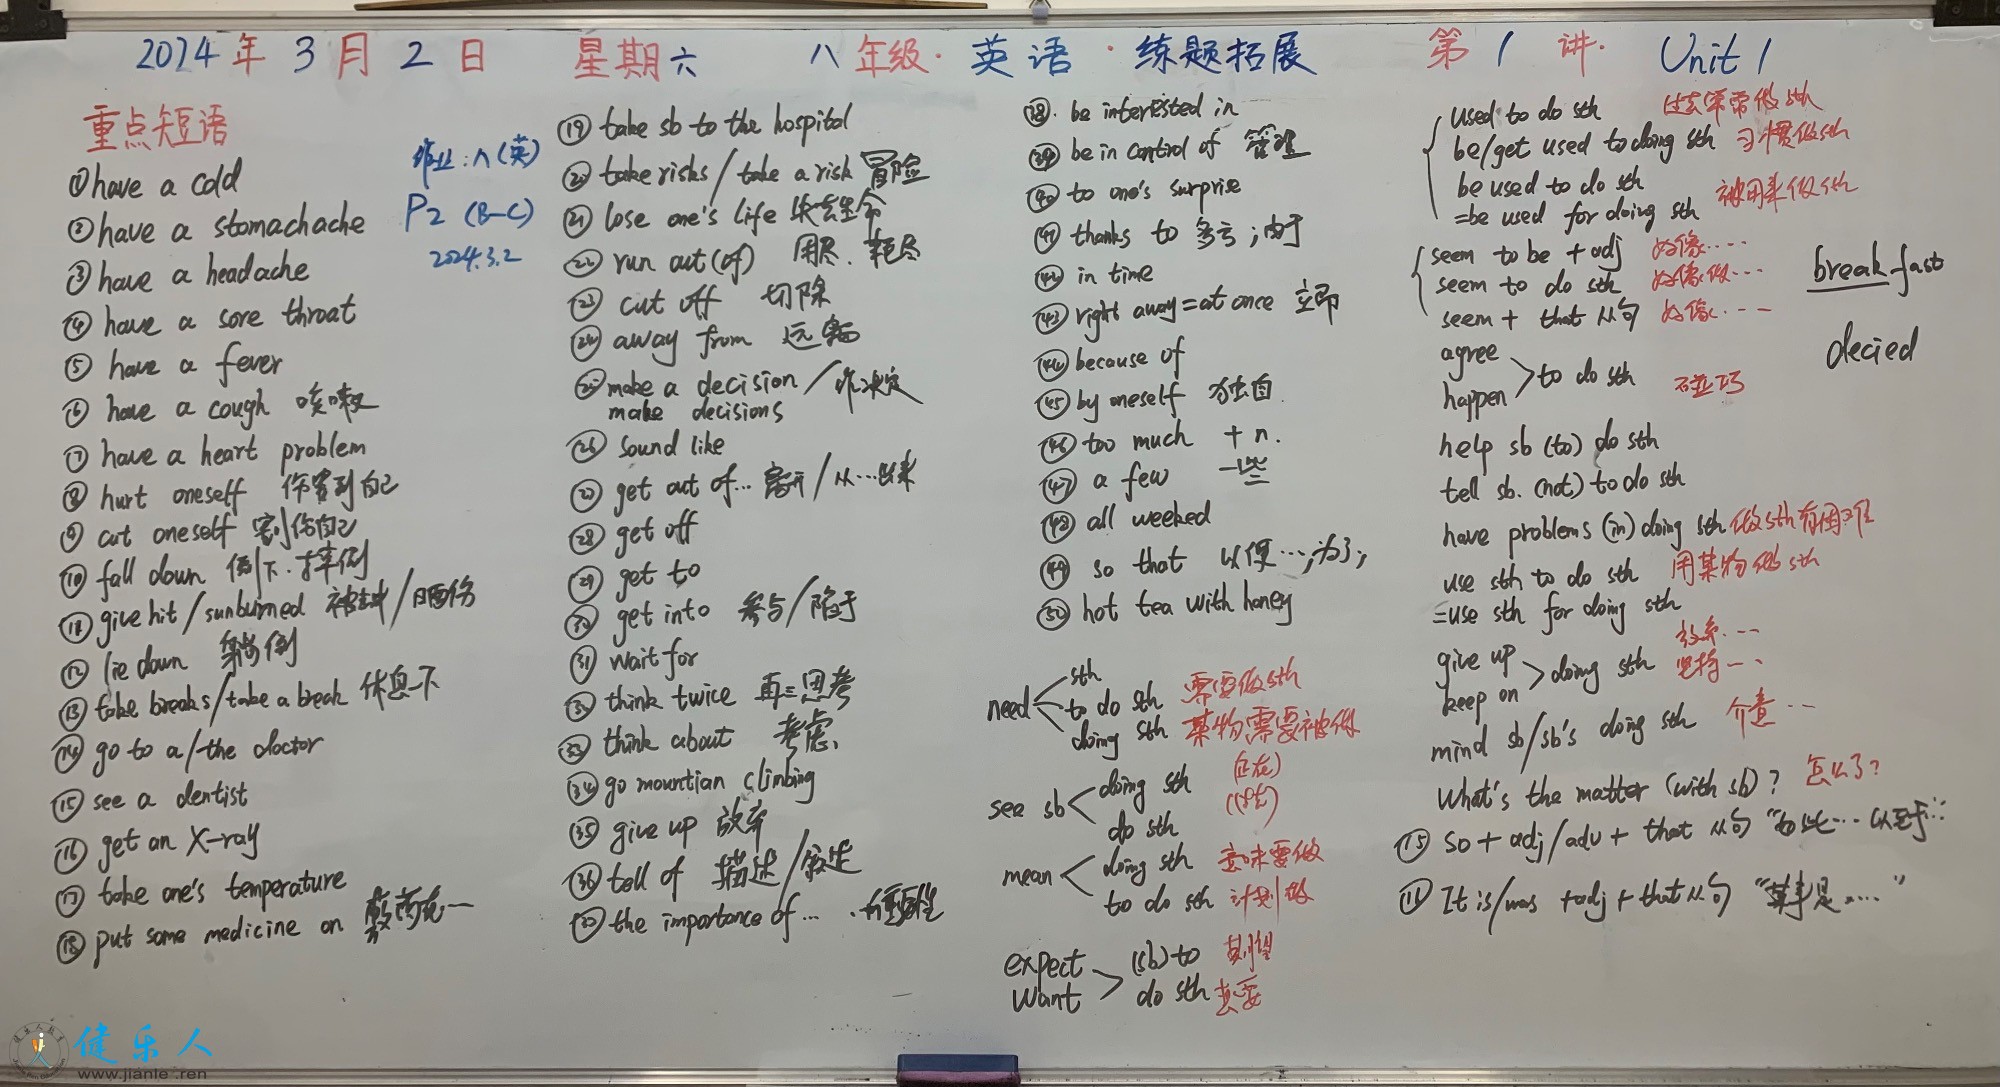 2024年3月2日 星期六 八年级·英语·练题拓展 第1讲· Unit 1
重点短语
作业:八(英)
P2 (B-C)
2024.3.2
①have a cold
②have a stomachache
③have a headache
④have a sore throat
⑤have a fever
⑥have a cough 咳嗽
⑦have a heart problem
⑧hurt oneself 伤害到自己
⑨cut oneself 割伤自己
⑩fall down 倒下.摔倒
⑪give hit/sunburned /晒伤
⑫lie down 躺倒
⑬take breaks/take a break 休息一下
⑭go to a/the doctor
⑮see a dentist
⑯get an X-ray
⑰take one's temperature
⑱put some medicine on 敷药
⑲take sb to the hospital
⑳take risks/take a risk 冒险
㉑lose one's life 失去生命
㉒run out(of) 用尽.耗尽
㉓cut off 切除
㉔away from 远离
㉕make a decision/作决定
make decisions
㉖sound like
㉗get out of… 离开/从…出来
㉘get off
㉙get to
㉚get into 参与/陷于
㉛wait for
㉜think twice 再三思考
㉝think about 考虑
㉞go mountian climbing
㉟give up 放弃
㊱tell of 描述/
㊲the importance of… …重要性
㊳. be interested in
㊴be in control of 管理
㊵to one's surprise
㊶thanks to 多亏;由于
㊷in time
㊸right away=at once 立即
㊹because of
㊺by oneself 独自
㊻too much + n.
㊼a few 一些
㊽all weeked
㊾so that 以便…;为了;
㊿hot tea with honey
need sth
to do sth 需要做sth
doing sth 某物需要被做
see sb doing sth (正在)
do sth
mean doing sth 意味要做
to do sth 计划做
expect (sb) to 期望
want do sth 想要
used to do sth 过去常常做sth
be/get used to doing sth 习惯做sth
be used to do sth 被用来做sth
=be used for doing sth
seem to be + adj 好像····
seem to do sth 好像做···
seem + that 从句 好像·--
break fast
decied
agree
happen to do sth 碰巧
help sb (to) do sth
tell sb. (not) to do sth
have problems (in) doing sth 做sth有困难
use sth to do sth 用某物做sth
=use sth for doing sth
give up 放弃·--
keep on doing sth 坚持--·
mind sb/sb's doing sth 介意···
What's the matter (with sb)? 怎么了?
⑮ so + adj/adv + that 从句 "如此…以至于…"
⑯ It is/was +adj + that从句 "某事是…"
健乐人
www.jianle.ren